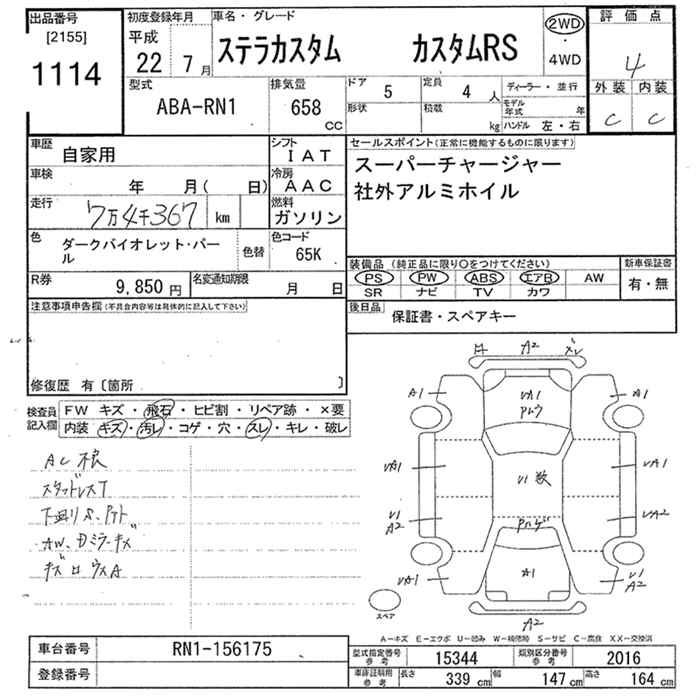 出品番号
[2155]
1114
初度登録年月
平成
22 7月
車名・グレード
ステラカスタム カスタムRS
2WD
・
4WD
評価点
4
外装 内装
C C
型式
ABA-RN1
排気量
658
CC
ドア 5
定員 4 人
形状
積載 kg
ディーラー・並行
モデル年式 年
ハンドル 左・右
車歴
自家用
シフト
IAT
車検
年 月( 日)
冷房
AAC
走行
7万4千367 km
燃料
ガソリン
色
ダークバイオレット・パール
色替
色コード
65K
R券
9,850円
名変通知期限
月 日
セールスポイント(正常に機能するものに限ります)
スーパーチャージャー
社外アルミホイル
装備品(純正品に限り○をつけてください)
PS PW ABS エアB AW
SR ナビ TV カワ
新車保証書
有・無
後日品
保証書・スペアキー
注意事項申告欄(不具合内容等は具体的に記入して下さい)
修復歴 有〔箇所 〕
検査員
記入欄
FW キズ・飛石・ヒビ割・リペア跡・×要
内装 キズ・汚レ・コゲ・穴・スレ・キレ・破レ
スタッドレスT
A2
A1
A1
UA1
UA1
U1
A2
UA2
UA1
U1
A2
A1
A2
スペア
A−キズ E−エクボ U−凹み W−補修跡 S−サビ C−腐食 XX−交換済
車台番号
RN1-156175
登録番号
型式指定番号
参考
15344
類別区分番号
参考
2016
車庫証明用
参考
長さ 339 cm
幅 147 cm
高さ 164 cm